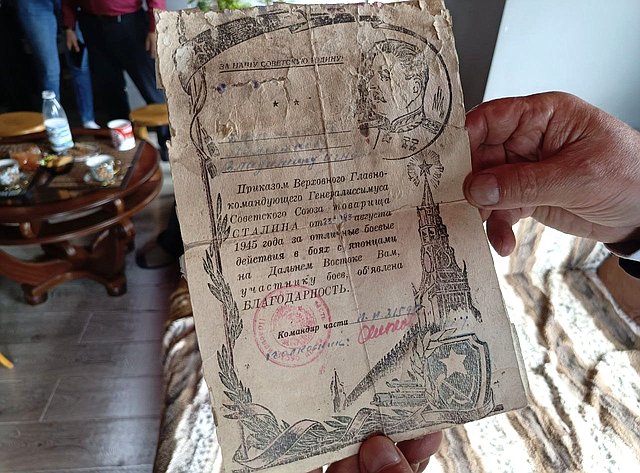 ЗА НАШУ СОВЕТСКУЮ РОДИНУ!
Приказом Верховного Главно-
командующего Генералиссимуса
Советского Союза товарища
СТАЛИНА от 23 августа
1945 года за отличные боевые
действия в боях с японцами
на Дальнем Востоке Вам,
участнику боев, об'явлена
БЛАГОДАРНОСТЬ.
Командир части
полковник: